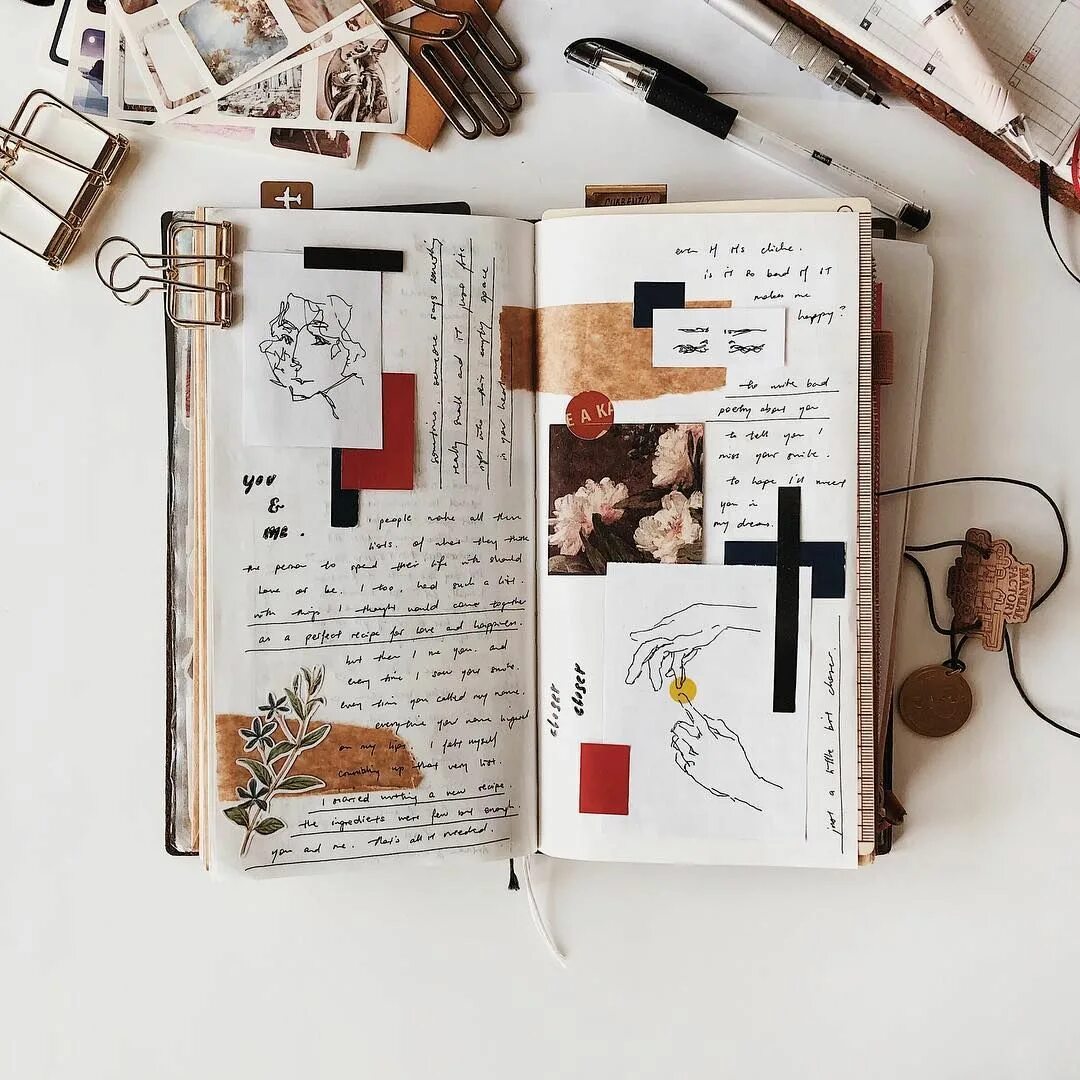 sometimes, someone says something
really small and it just fits
right into this empty space
in your heart.
you
&
me.
people make all these
lists. of what they think
the person to spend their life with should
love or be. I too, had such a list.
with things I thought would come together
as a perfect recipe for love and happiness.
but then I met you. and
every time I saw your smile.
every time you called my name.
everytime your name lingered
on my lips. I felt myself
crumbling up that very list.
I started writing a new recipe.
the ingredients were few but enough.
you and me. that's all it needed.
even if it's cliche.
is it so bad if it
makes me
happy?
to write bad
poetry about you
to tell you I
miss your smile.
to hope I'll meet
you in
my dreams.
E A KA
closer
closer
just a little bit closer.
MANUAL
FACTORY